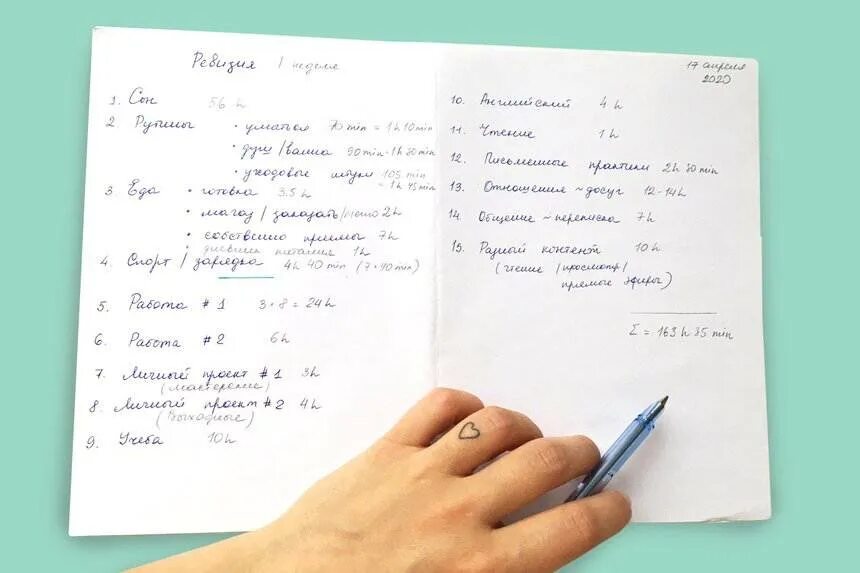 Ревизия 1 неделя
1. Сон 56 h
2. Рутины • уматься 70 min = 1 h 10 min
• душ/ванна 90 min - 1 h 30 min
• уходовые штуки 105 min
= 1 h 45 min
3. Еда • готовка 3.5 h
• магаз/заказать/меню 2 h
• собственно приемы 7 h
• дневник питания 1 h
4. Спорт / зарядка 4 h 40 min (7 * 40 min)
5. Работа # 1 3 * 8 = 24 h
6. Работа # 2 6 h
7. Личный проект # 1 3 h
(мастерские)
8. Личный проект # 2 4 h
(Выходные)
9. Учеба 10 h
17 апреля
2020
10. Английский 4 h
11. Чтение 1 h
12. Письменные практики 2 h 30 min
13. Отношения ~ досуг 12-14 h
14. Общение ~ переписка 7 h
15. Разный контент 10 h
(чтение /просмотр/
прямые эфиры)
Σ = 163 h 35 min